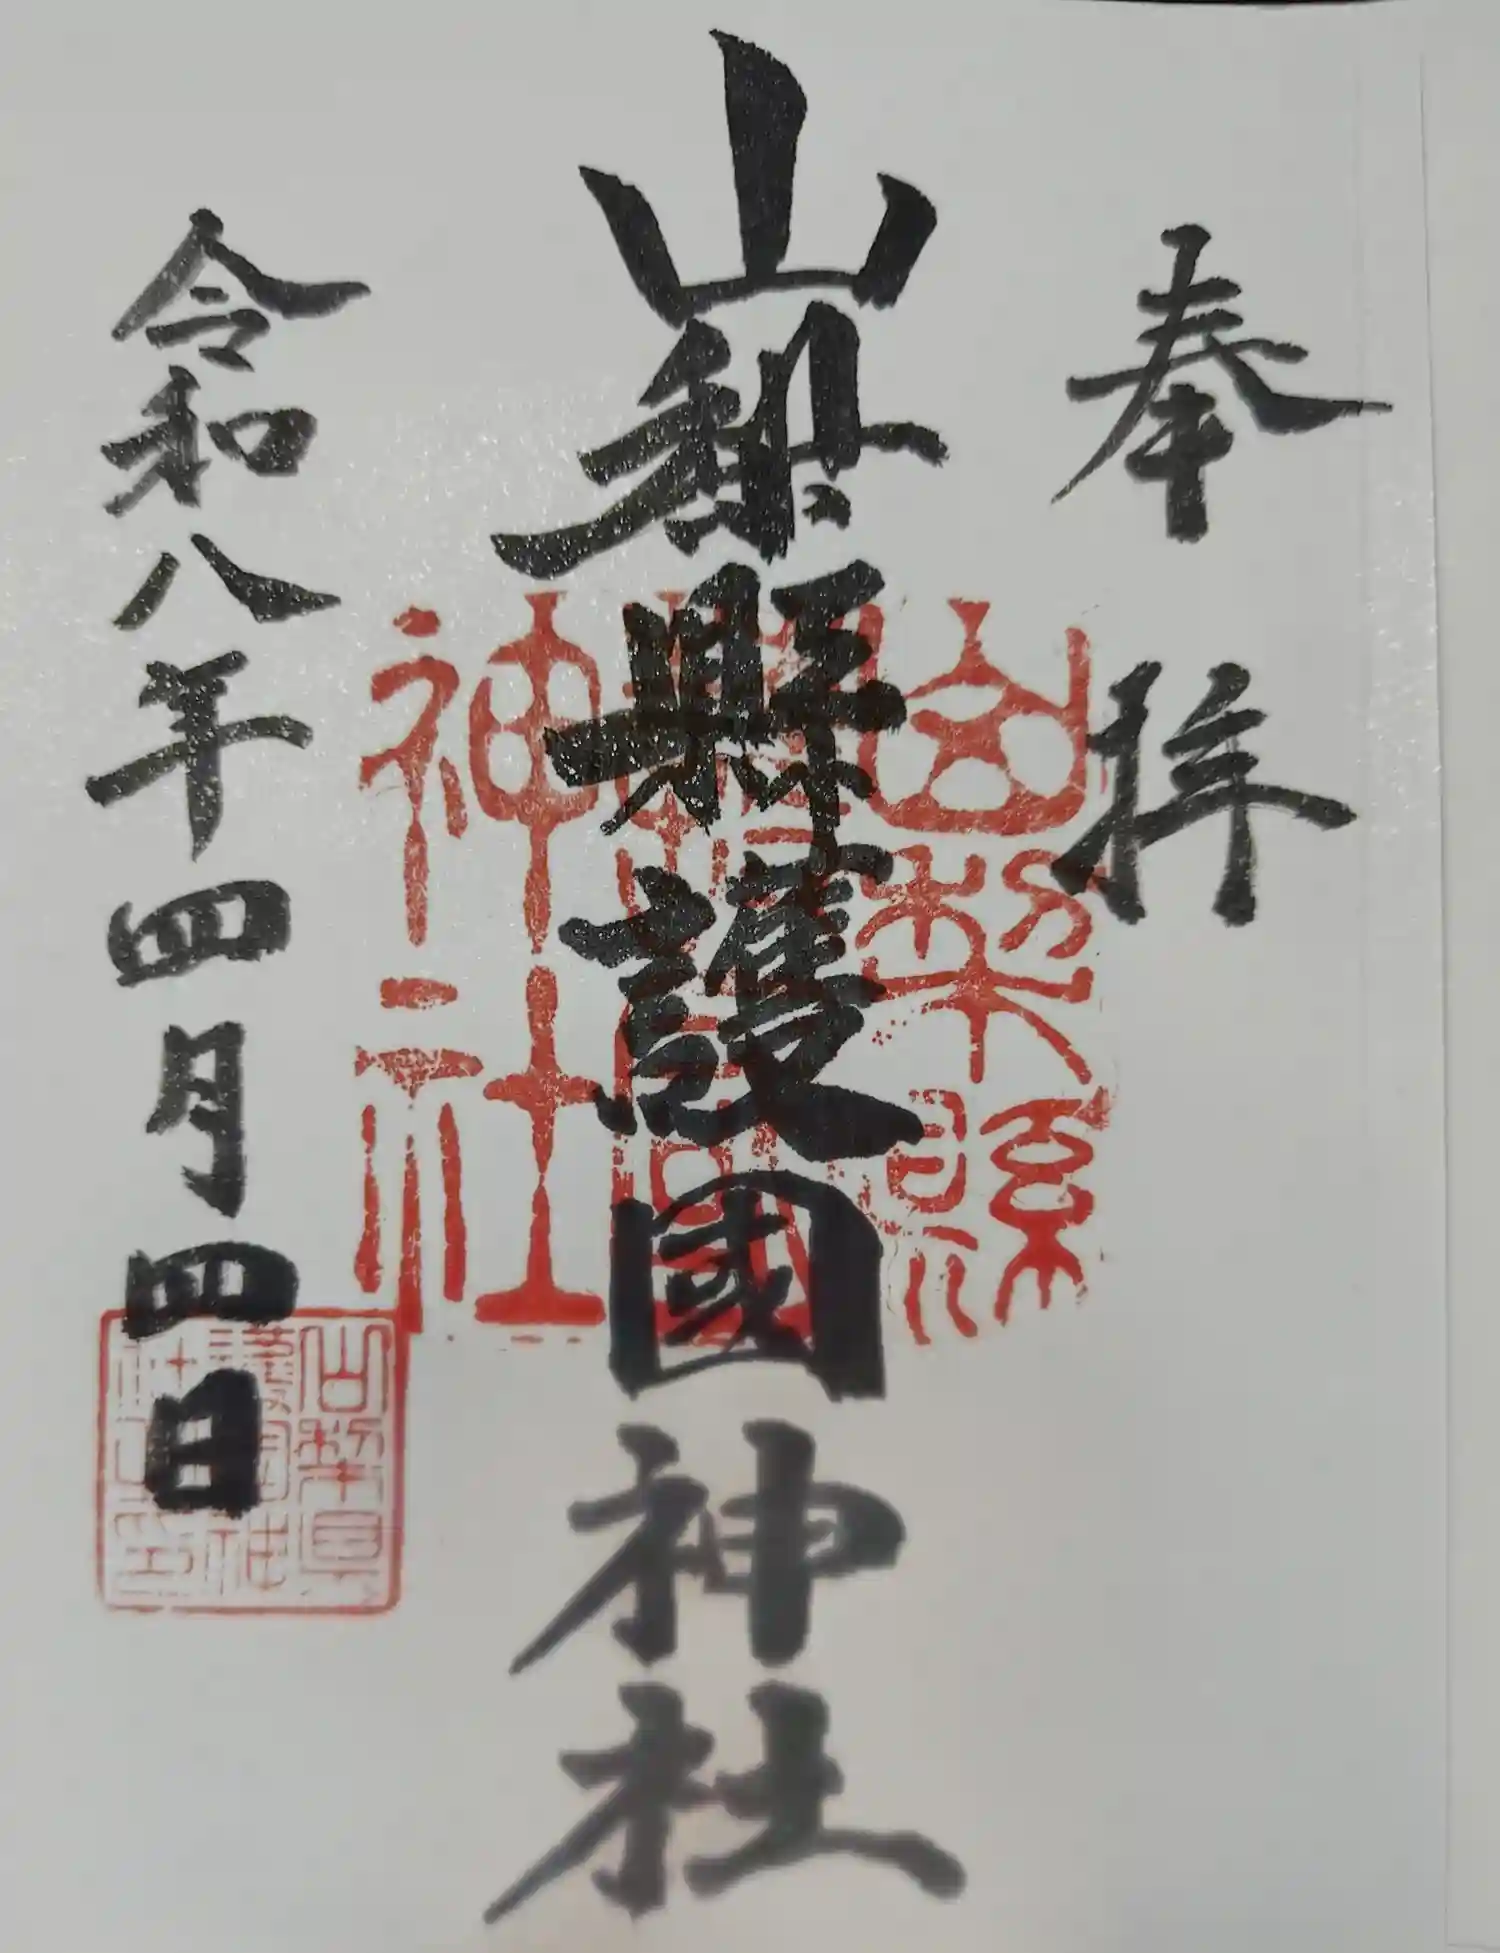 奉拝
山梨縣護國神社
令和八年四月四日
山梨縣
護國
神社
山梨県
護國神
社之印